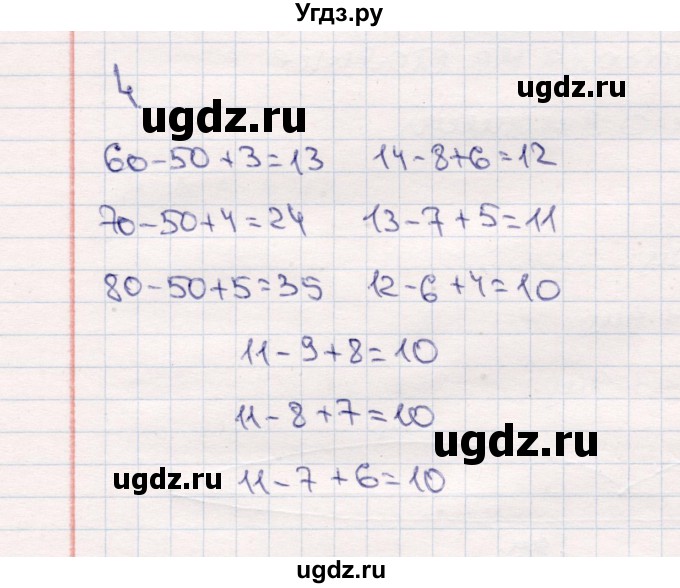 Угдз.ру
4
ugdz.ru
ugdz.ru
60-50+3=13 14-8+6=12
70-50+4=24 13-7+5=11
80-50+5=35 12-6+4=10
11-9+8=10
11-8+7=10
ugdz.ru
11-7+6=10
ugdz.ru
ugdz.ru